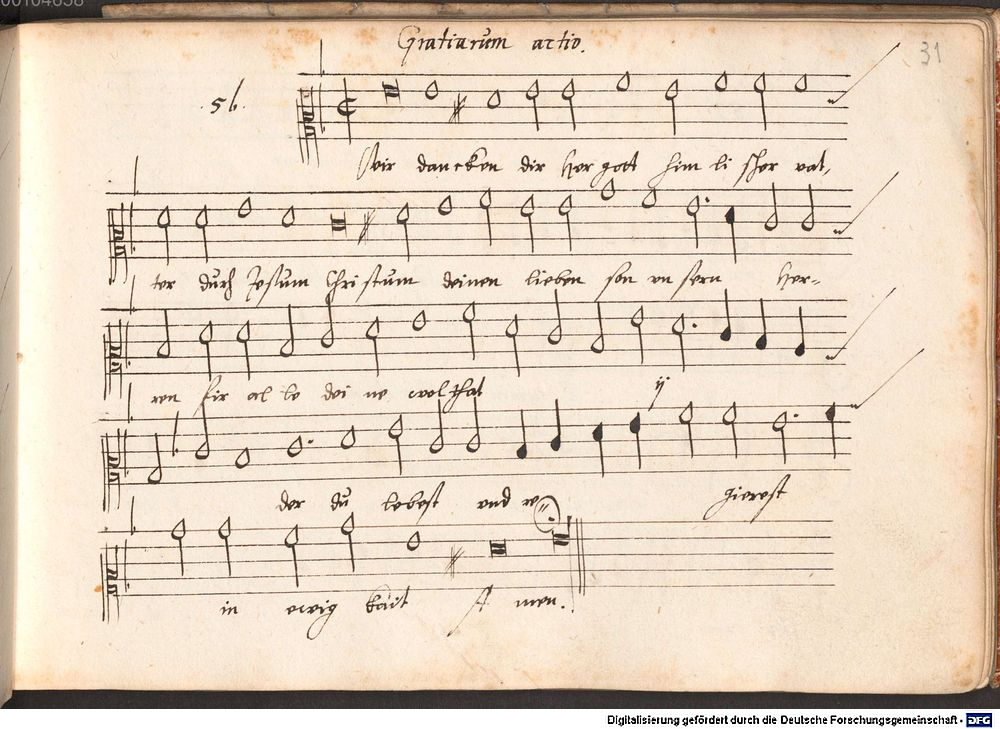 00104638
Gratiarum actio.
31
.56.
Wir dancken dir Her gott him li scher vat,
ter durch Jesum Christum deinen lieben son un sern Her=
ren fir al le dei ne wolthat ij
der du lebest und re gierest
in ewig kait A men.
Digitalisierung gefördert durch die Deutsche Forschungsgemeinschaft - DFG